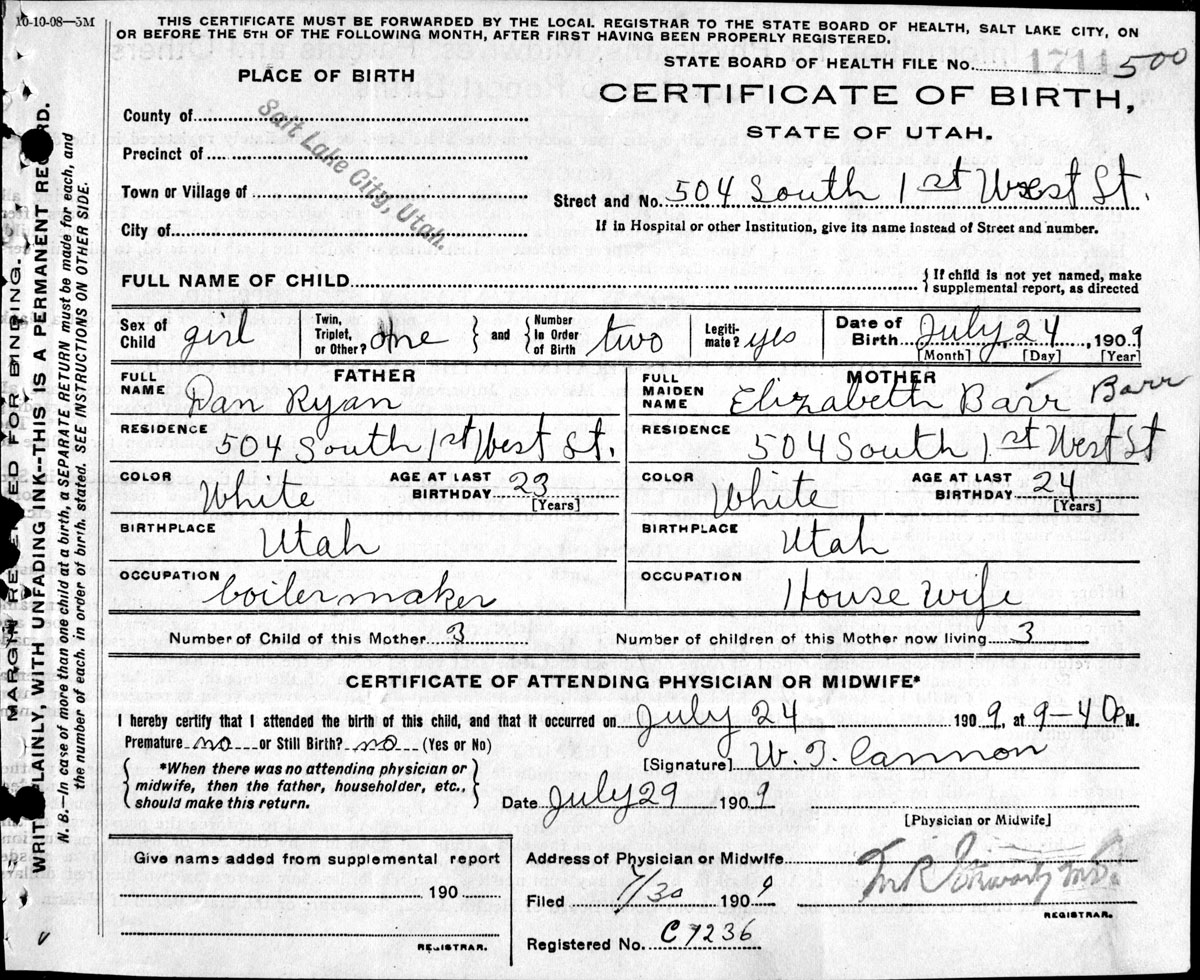 10-10-08—5M
THIS CERTIFICATE MUST BE FORWARDED BY THE LOCAL REGISTRAR TO THE STATE BOARD OF HEALTH, SALT LAKE CITY, ON
OR BEFORE THE 5TH OF THE FOLLOWING MONTH, AFTER FIRST HAVING BEEN PROPERLY REGISTERED.
STATE BOARD OF HEALTH FILE No. 1711 500
PLACE OF BIRTH
CERTIFICATE OF BIRTH,
STATE OF UTAH.
County of
Precinct of
Town or Village of
City of
Salt Lake City, Utah.
Street and No. 504 South 1st West St.
If in Hospital or other Institution, give its name instead of Street and number.
FULL NAME OF CHILD
If child is not yet named, make
supplemental report, as directed
Sex of Child girl
Twin, Triplet, or Other? One and Number In Order of Birth two
Legitimate? yes
Date of Birth July 24, 1909
[Month] [Day] [Year]
FATHER
FULL NAME Dan Ryan
RESIDENCE 504 South 1st West St.
COLOR White AGE AT LAST BIRTHDAY 23
[Years]
BIRTHPLACE Utah
OCCUPATION boilermaker
MOTHER
FULL MAIDEN NAME Elizabeth Barr Barr
RESIDENCE 504 South 1st West St
COLOR White AGE AT LAST BIRTHDAY 24
[Years]
BIRTHPLACE Utah
OCCUPATION House wife
Number of Child of this Mother 3 Number of children of this Mother now living 3
CERTIFICATE OF ATTENDING PHYSICIAN OR MIDWIFE*
I hereby certify that I attended the birth of this child, and that it occurred on July 24 1909, at 9-40 P M.
Premature no or Still Birth? no (Yes or No)
*When there was no attending physician or
midwife, then the father, householder, etc.,
should make this return.
[Signature] W. T. Cannon
Date July 29 1909
[Physician or Midwife]
Give name added from supplemental report
190
REGISTRAR.
Address of Physician or Midwife
Filed 7/30 1909
REGISTRAR.
Registered No. C7236
MARGIN RESERVED FOR BINDING.
WRITE PLAINLY, WITH UNFADING INK--THIS IS A PERMANENT RECORD.
N. B.—In case of more than one child at a birth, a SEPARATE RETURN must be made for each, and
the number of each, in order of birth, stated. SEE INSTRUCTIONS ON OTHER SIDE.